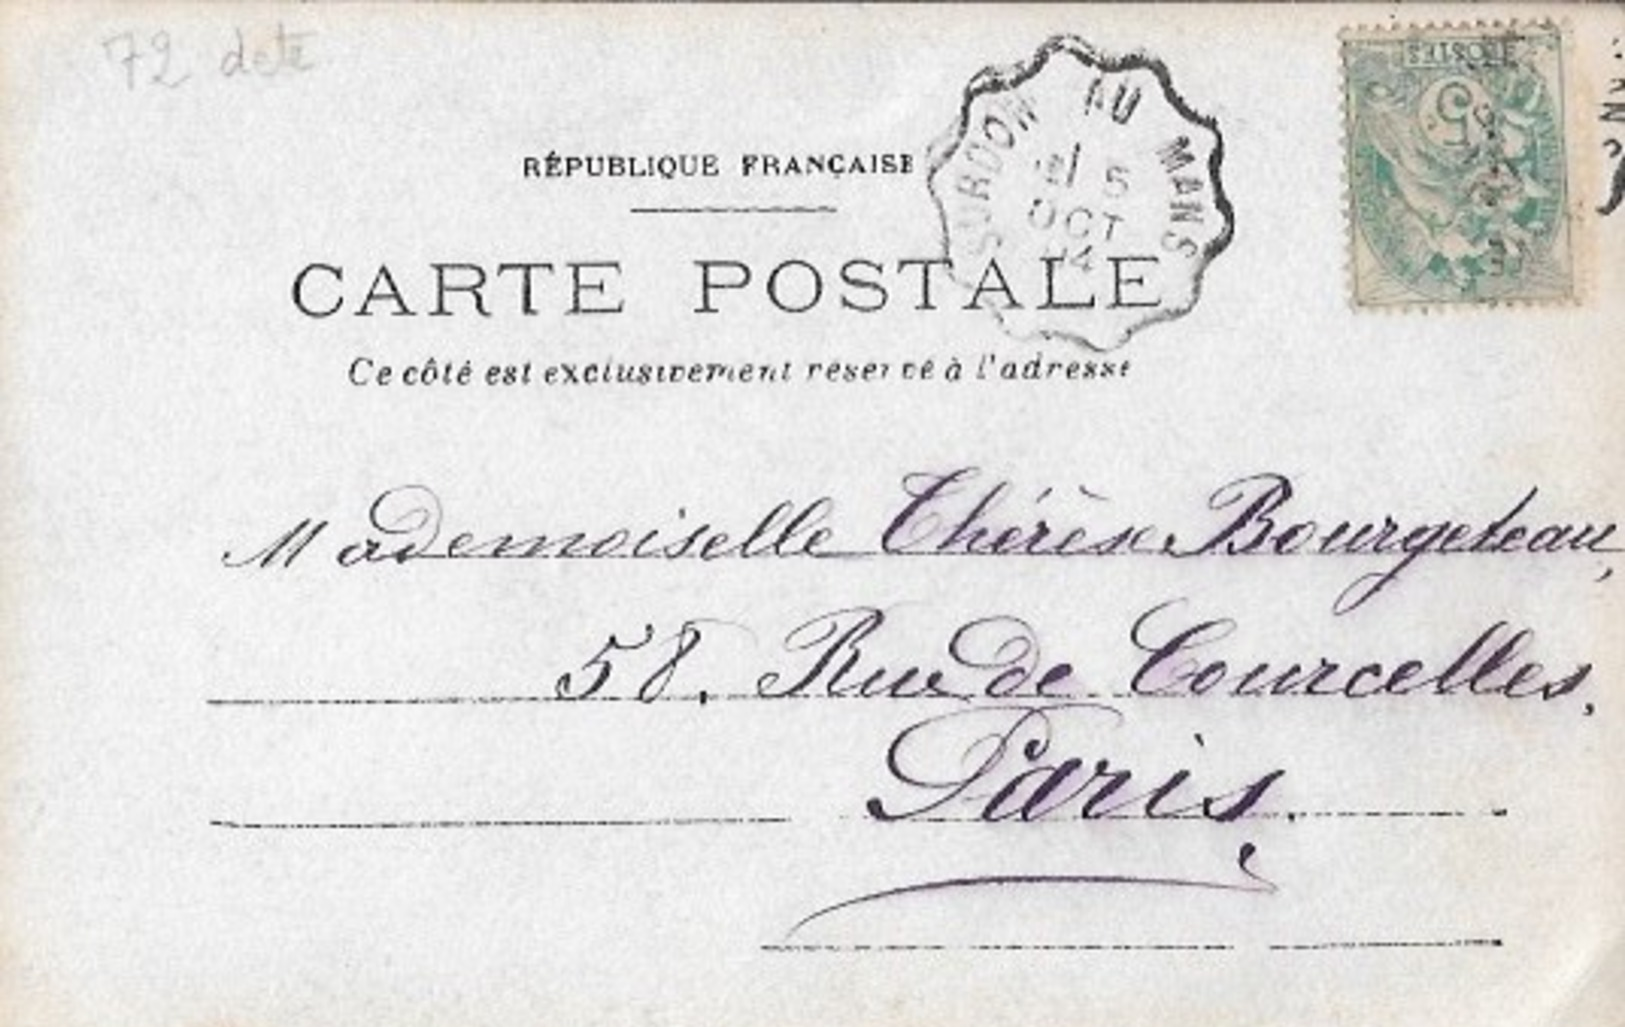 72 dete
RÉPUBLIQUE FRANÇAISE
CARTE POSTALE
Ce côté est exclusivement réservé à l'adresse
SURDON AU MANS
5
OCT
04
POSTES
5
Mademoiselle Thérèse Bourgeteau,
58. Rue de Courcelles,
Paris.